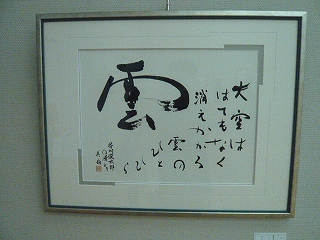 大空は
はてもなく
消えかかる
雲の
ひとひら
雲